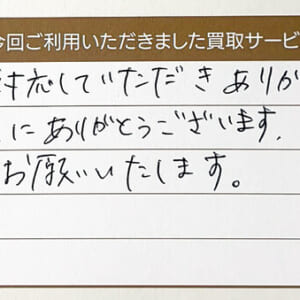 今回ご利用いただきました買取サービ
対応していただきありが
にありがとうございます。
お願いいたします。